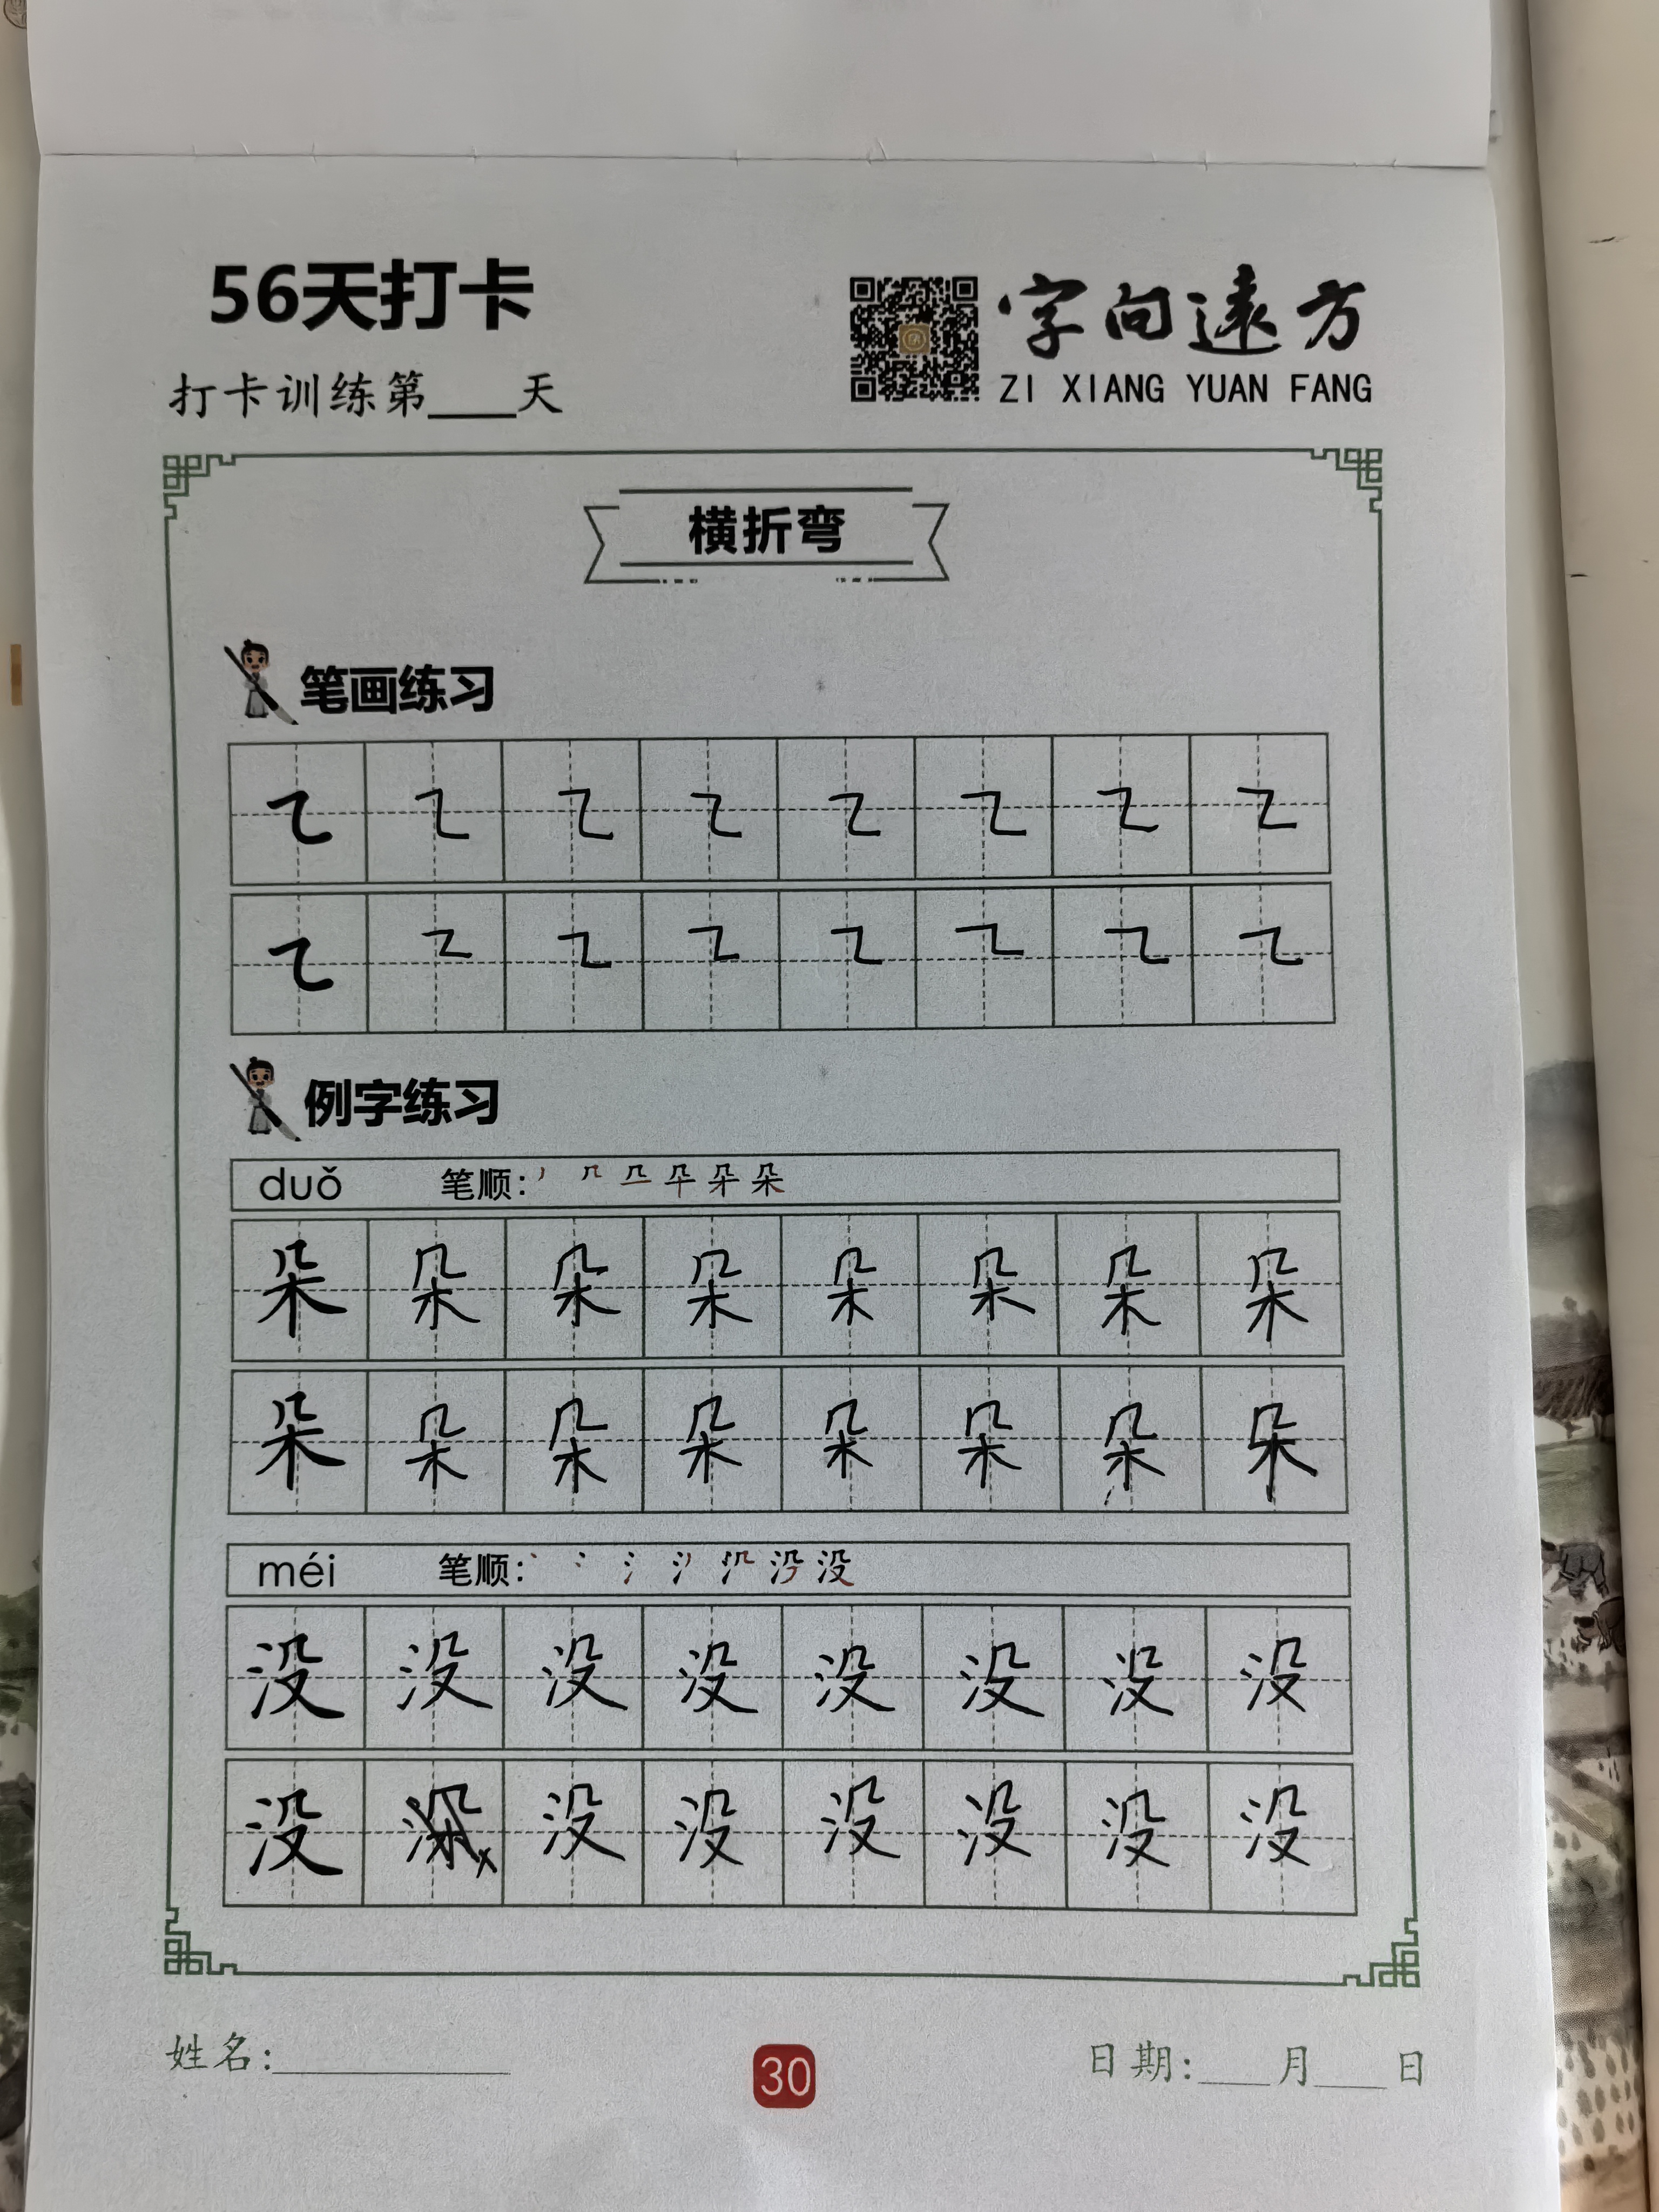 56天打卡
字向遠方
打卡训练第____天
ZI XIANG YUAN FANG
横折弯
笔画练习
㇍ ㇍ ㇍ ㇍ ㇍ ㇍ ㇍ ㇍
㇍ ㇍ ㇍ ㇍ ㇍ ㇍ ㇍ ㇍
例字练习
duǒ 笔顺: 朵
朵 朵 朵 朵 朵 朵 朵 朵
朵 朵 朵 朵 朵 朵 朵 朵
méi 笔顺: 没
没 没 没 没 没 没 没 没
没 没 没 没 没 没 没
姓名:____ 30 日期:____月____日